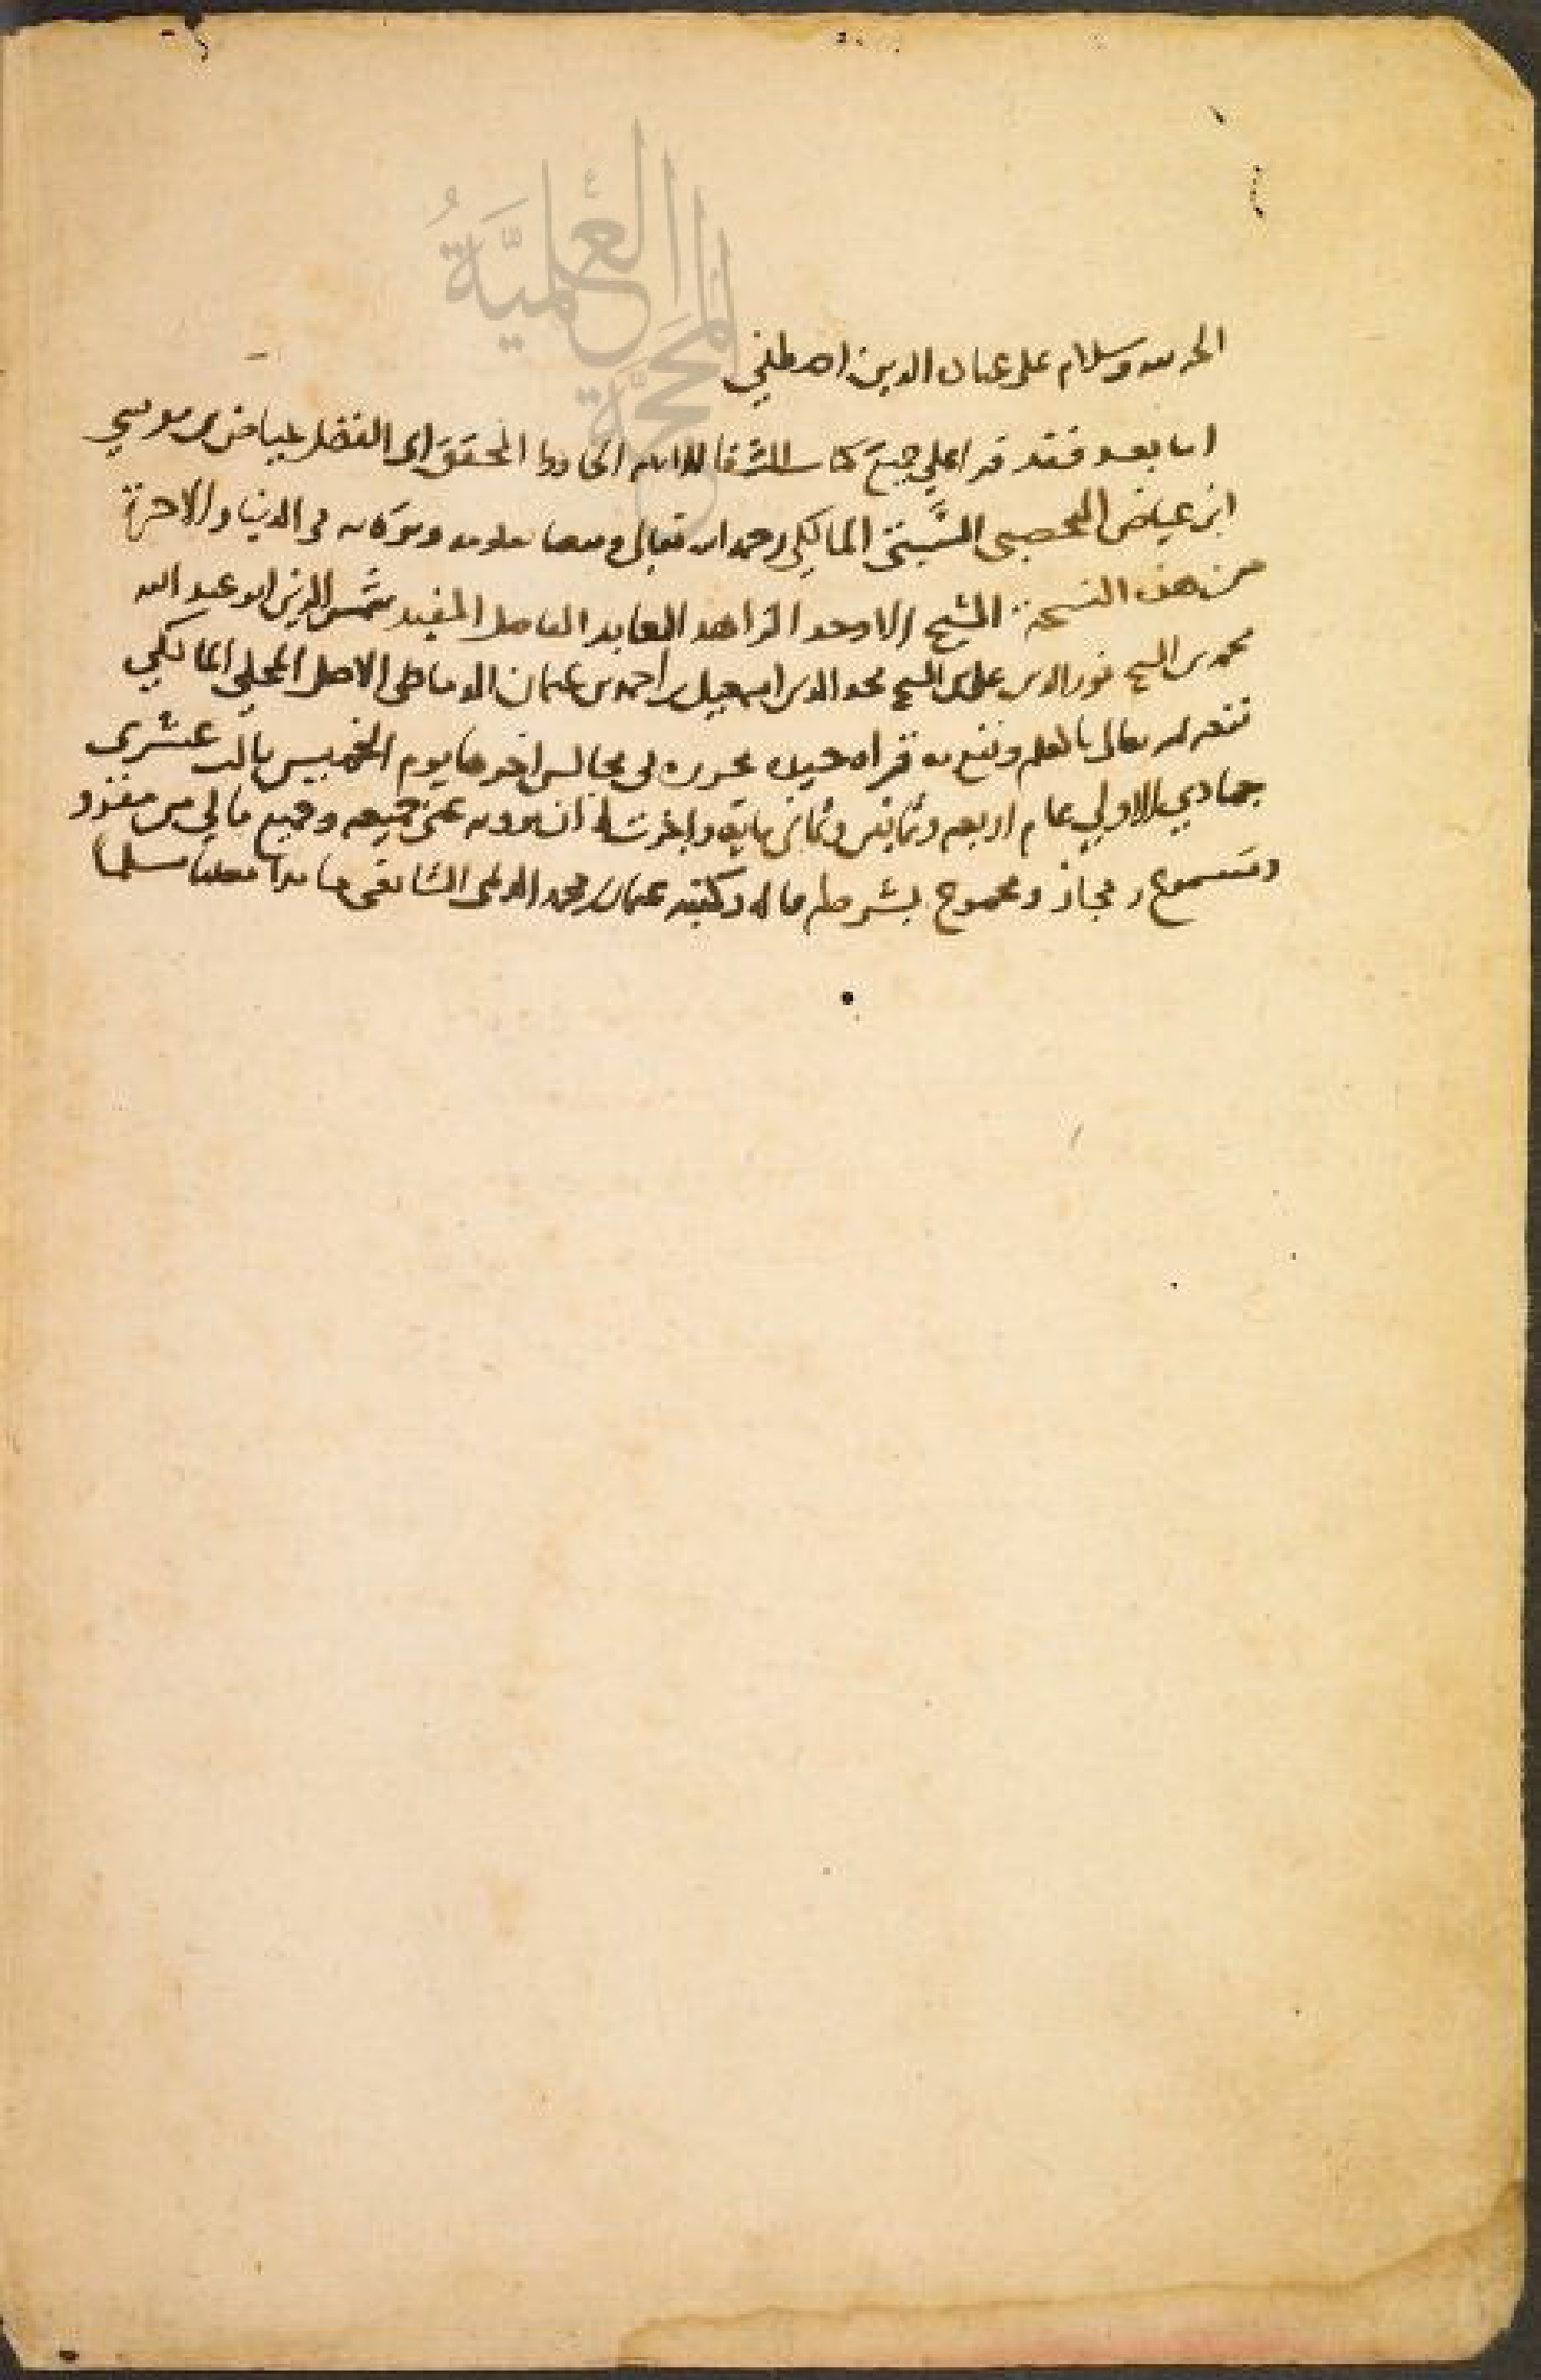 الحمد لله وسلام على عباده الذين اصطفى
اما بعد فقد قرا علي جميع كتاب الشفا للامام الحافظ المحقق ابى الفضل عياض بن موسى
ابن عياض اليحصبى السَّبتى المالكي رحمه الله تعالى ونفعنا بعلومه وبركاته فى الدنيا والاخرة
من هذه النسخة الشيخ الاوحد الزاهد العابد الفاضل المفيد شمس الدين ابو عبد الله
محمد بن الشيخ نور الدين على بن الشيخ مجد الدين اسمعيل بن احمد بن عثمان الدماطى الاصل المحلي المالكي
نفعه الله تعالى بالعلم ونفع به قراه حسنه محررة فى مجالس اخرها يوم الخميس ثالث عشري
جمادي الاولي عام اربعه وثمانين وثمانى ماية واجزت له ان يرويه عنى جميعه وجميع مالي من مقروء
ومسموع ومجاز ومجموع بشرطه قاله وكتبه عثمان بن محمد الديمى الشافعى حامدا مصليا مسلما
المَحَجَّة العِلْميَّةُ